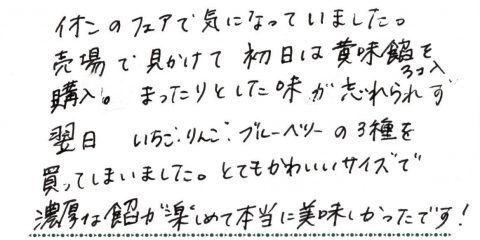 イオンのフェアで気になっていました。
売場で見かけて 初日は黄味餡を
3コ入
購入。まったりとした味が忘れられず
翌日 いちご・りんご・ブルーベリーの3種を
買ってしまいました。とてもかわいいサイズで
濃厚な餡が楽しめて本当に美味しかったです!